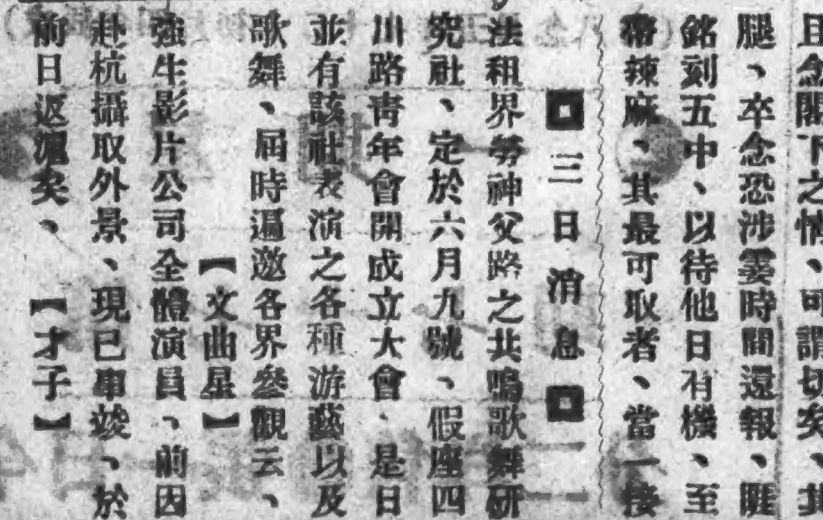 且念閣下之情、可謂切矣、其
腿、卒念恐涉霎時間還報、睚
銘刻五中、以待他日有機、至
帶辣麻、其最可取者、當一接
三日消息
法租界勞神父路之共鳴歌舞研
究社、定於六月九號、假座四
川路青年會開成立大會、是日
並有該社表演之各種游藝以及
歌舞、屆時遍邀各界參觀云、
【文曲星】
強生影片公司全體演員、前因
赴杭攝取外景、現已事竣、於
前日返滬矣、【才子】